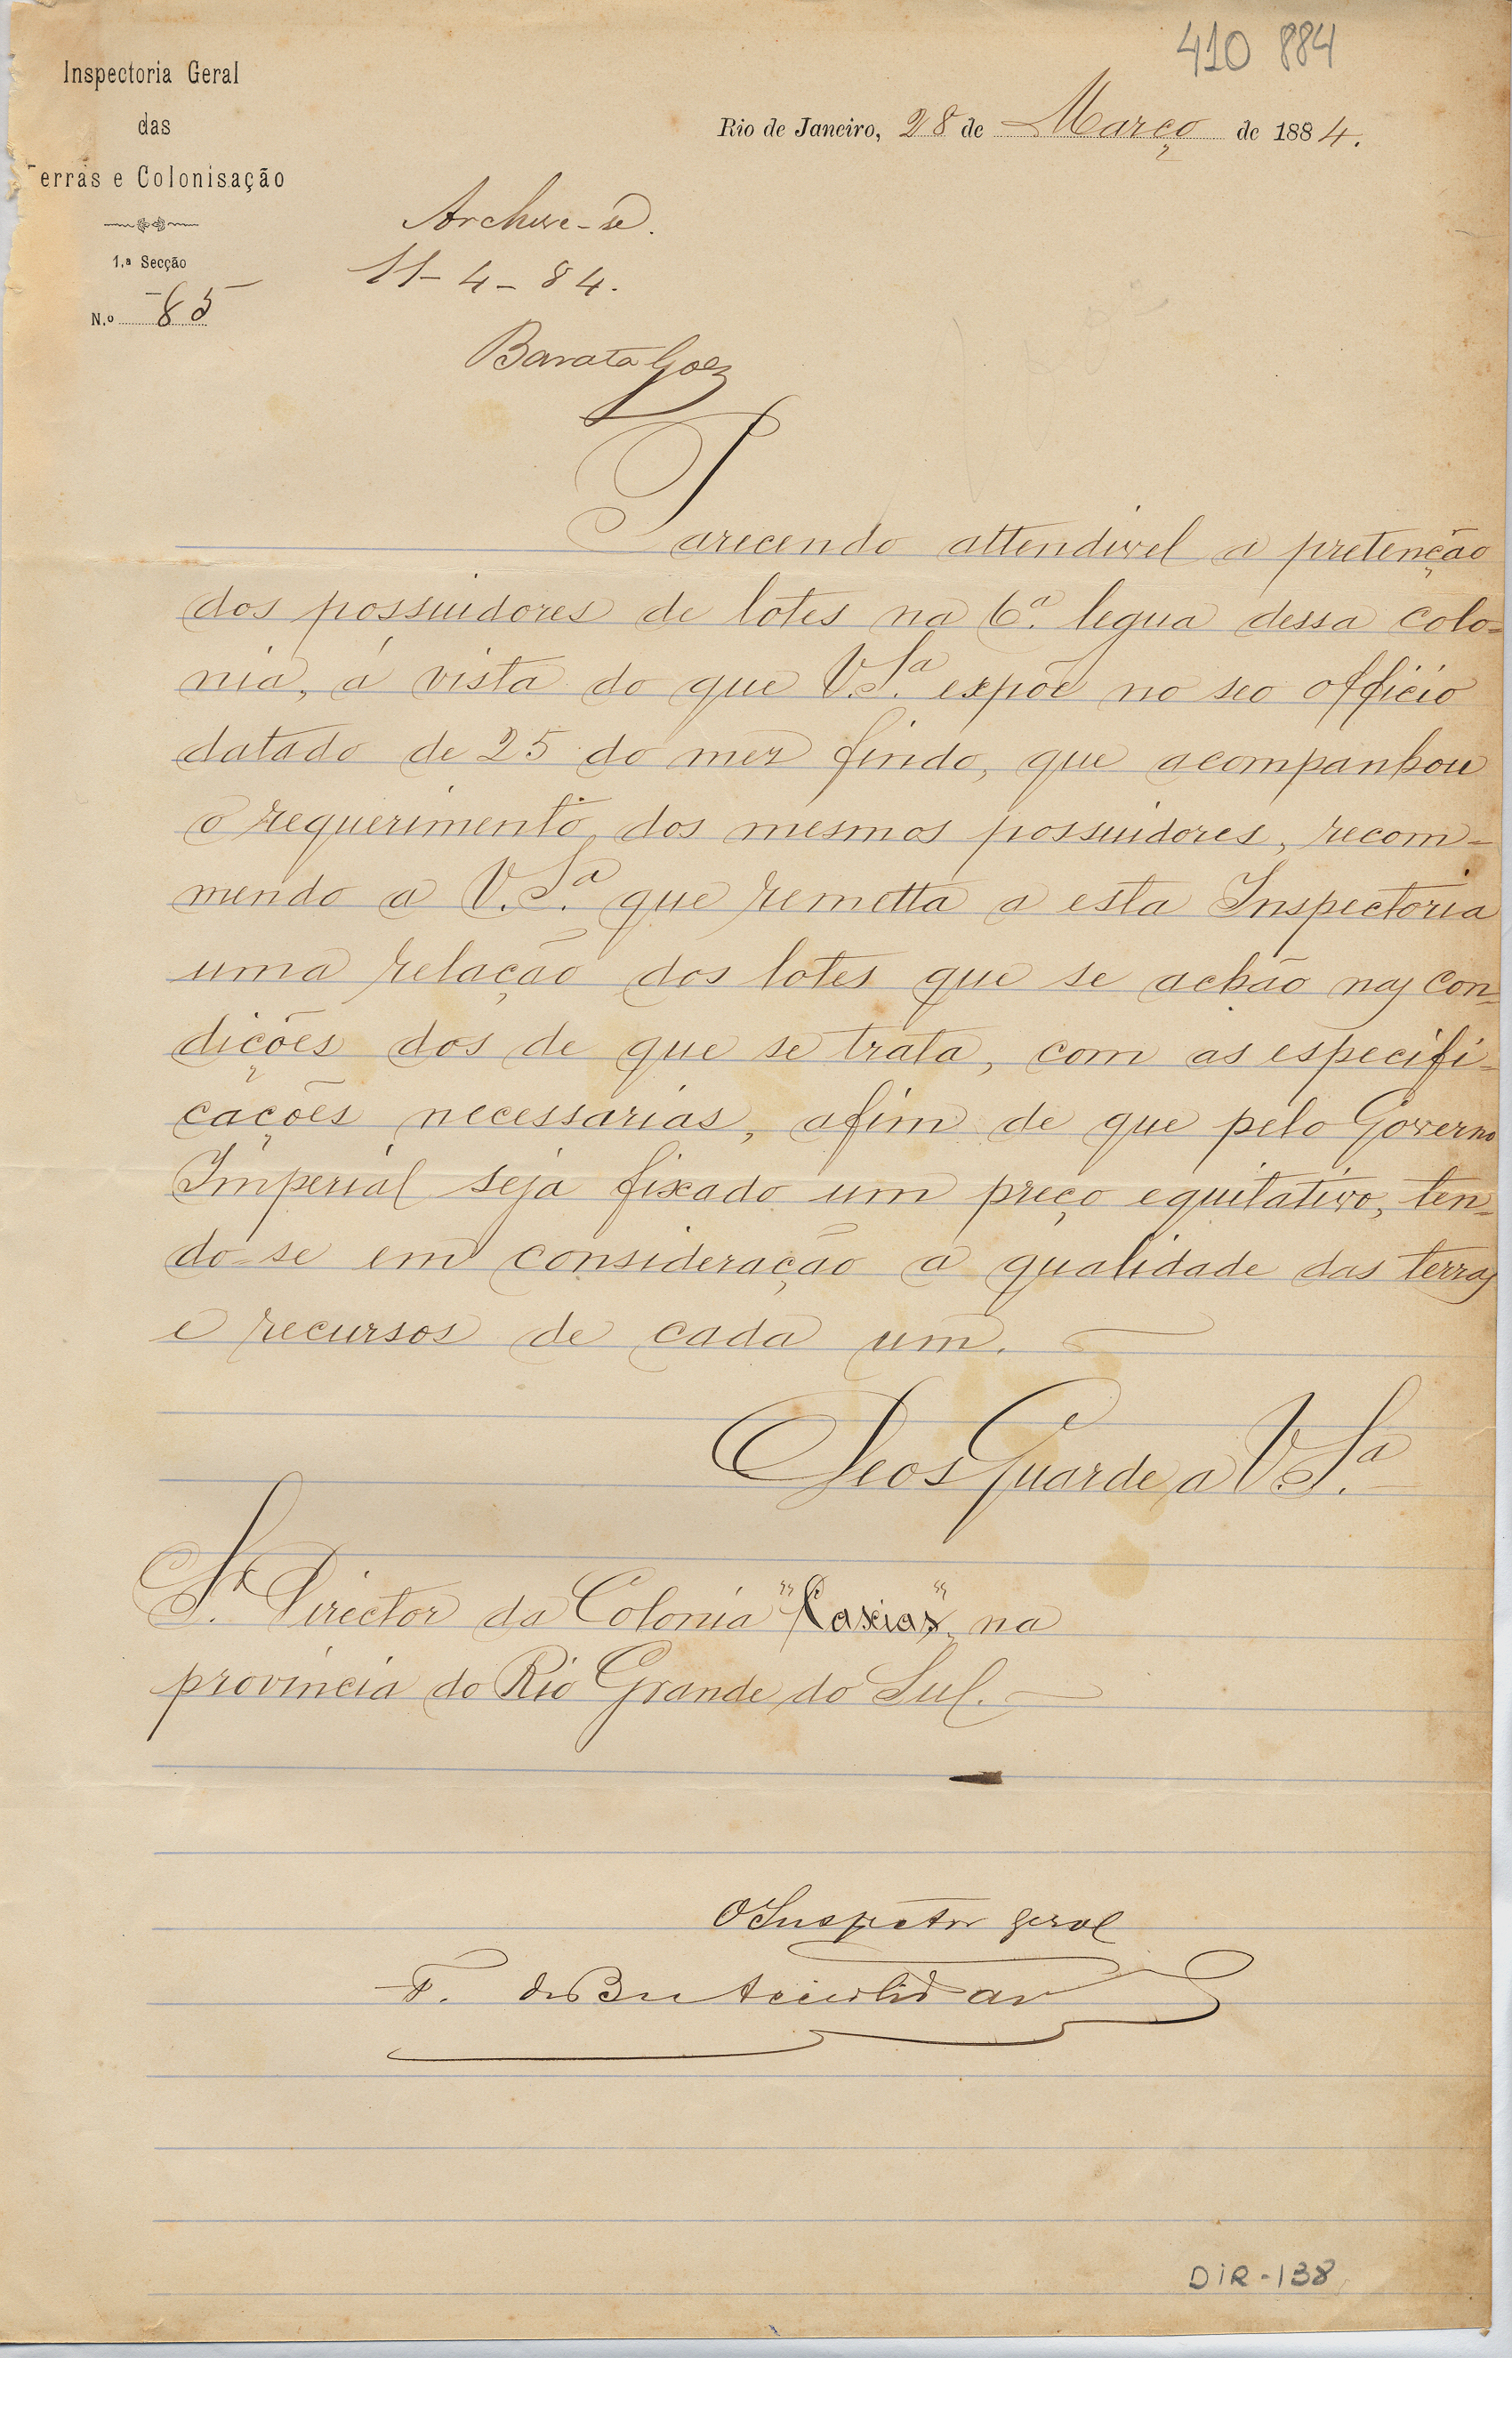 410 884
Inspectoria Geral
das
Terras e Colonisação
1.ª Secção
N.º 85
Rio de Janeiro, 28 de Março de 1884.
Archive-se.
11-4-84.
Barata Goes
Parecendo attendivel a pretenção
dos possuidores de lotes na 6.ª legua dessa colo-
nia, á vista do que V.S.ª expõe no seo officio
datado de 25 do mez findo, que acompanhou
o requerimento dos mesmos possuidores, recom-
mendo a V.S.ª que remetta a esta Inspectoria
uma relação dos lotes que se achão nas con-
dições dos de que se trata, com as especifi-
cações necessarias, afim de que pelo Governo
Imperial seja fixado um preço equitativo, ten-
do-se em consideração a qualidade das terras
e recursos de cada um.
Deos Guarde a V.S.ª
Sr. Director da Colonia "Caxias", na
provincia do Rio Grande do Sul.
O Inspetor geral
F. de B. e Accioli de
DIR-138